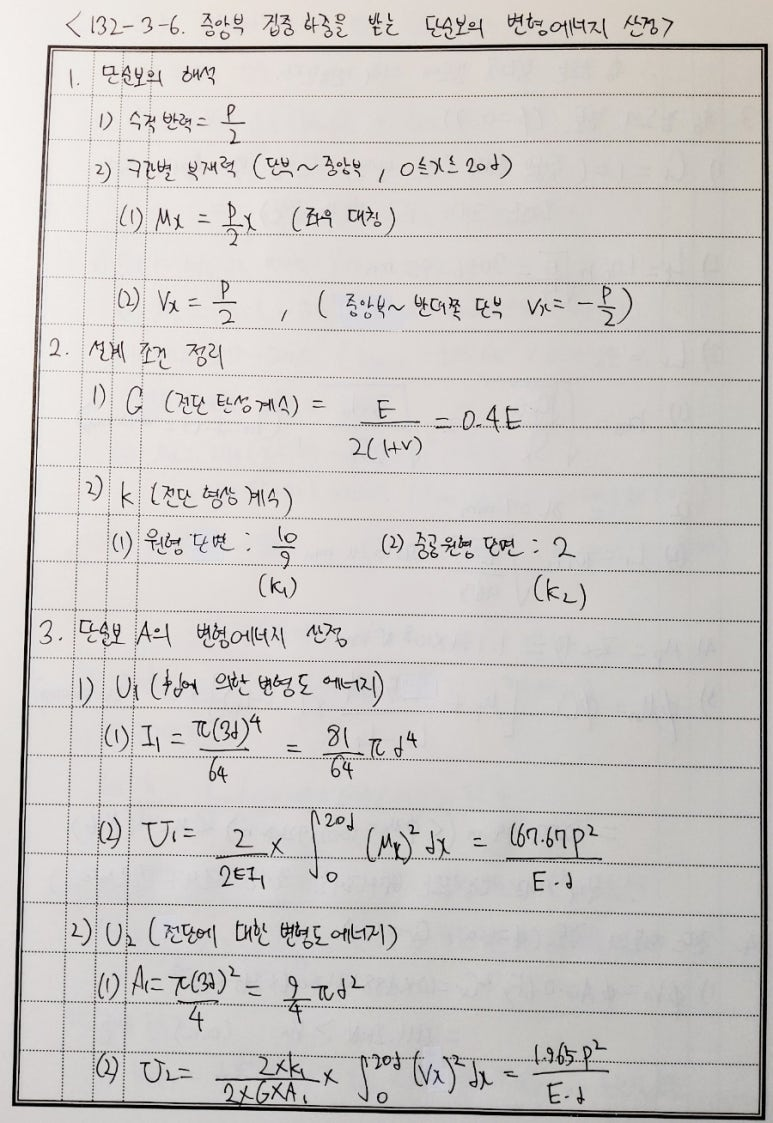 <132-3-6. 중앙부 집중하중을 받는 단순보의 변형에너지 산정>
1. 단순보의 해석
1) 수직반력 = P/2
2) 구간별 부재력 (단부~중앙부, 0≤x≤20d)
(1) Mx = P/2 x (좌우 대칭)
(2) Vx = P/2 , (중앙부~반대쪽 단부 Vx = -P/2)
2. 설계 조건 정리
1) G (전단탄성계수) = E/2(1+ν) = 0.4E
2) k (전단형상계수)
(1) 원형단면 : 10/9 (2) 중공원형 단면 : 2
(k1) (k2)
3. 단순보 A의 변형에너지 산정
1) U1 (휨에 의한 변형도 에너지)
(1) I1 = π(3d)^4/64 = 81/64 πd^4
(2) U1 = 2/2EI1 × ∫0^20d (Mx)^2 dx = 167.67P^2/E·d
2) U2 (전단에 대한 변형도에너지)
(1) A1 = π(3d)^2/4 = 9/4 πd^2
(2) U2 = 2×k1/2×G×A1 × ∫0^20d (Vx)^2 dx = 1.965P^2/E·d